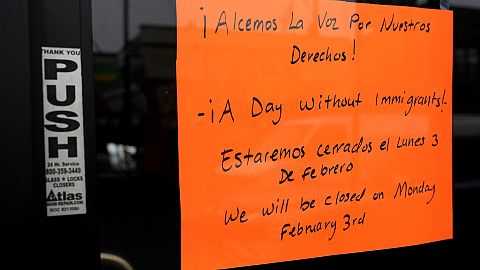 ¡Alcemos La Voz Por Nuestros
Derechos!
-¡A Day without Immigrants!-
Estaremos cerrados el Lunes 3
De febrero
We will be closed on Monday
February 3rd
THANK YOU
PUSH
24 Hr. Service
800-359-3449
GLASS • LOCKS
CLOSERS
Atlas
DOORREPAIR.COM